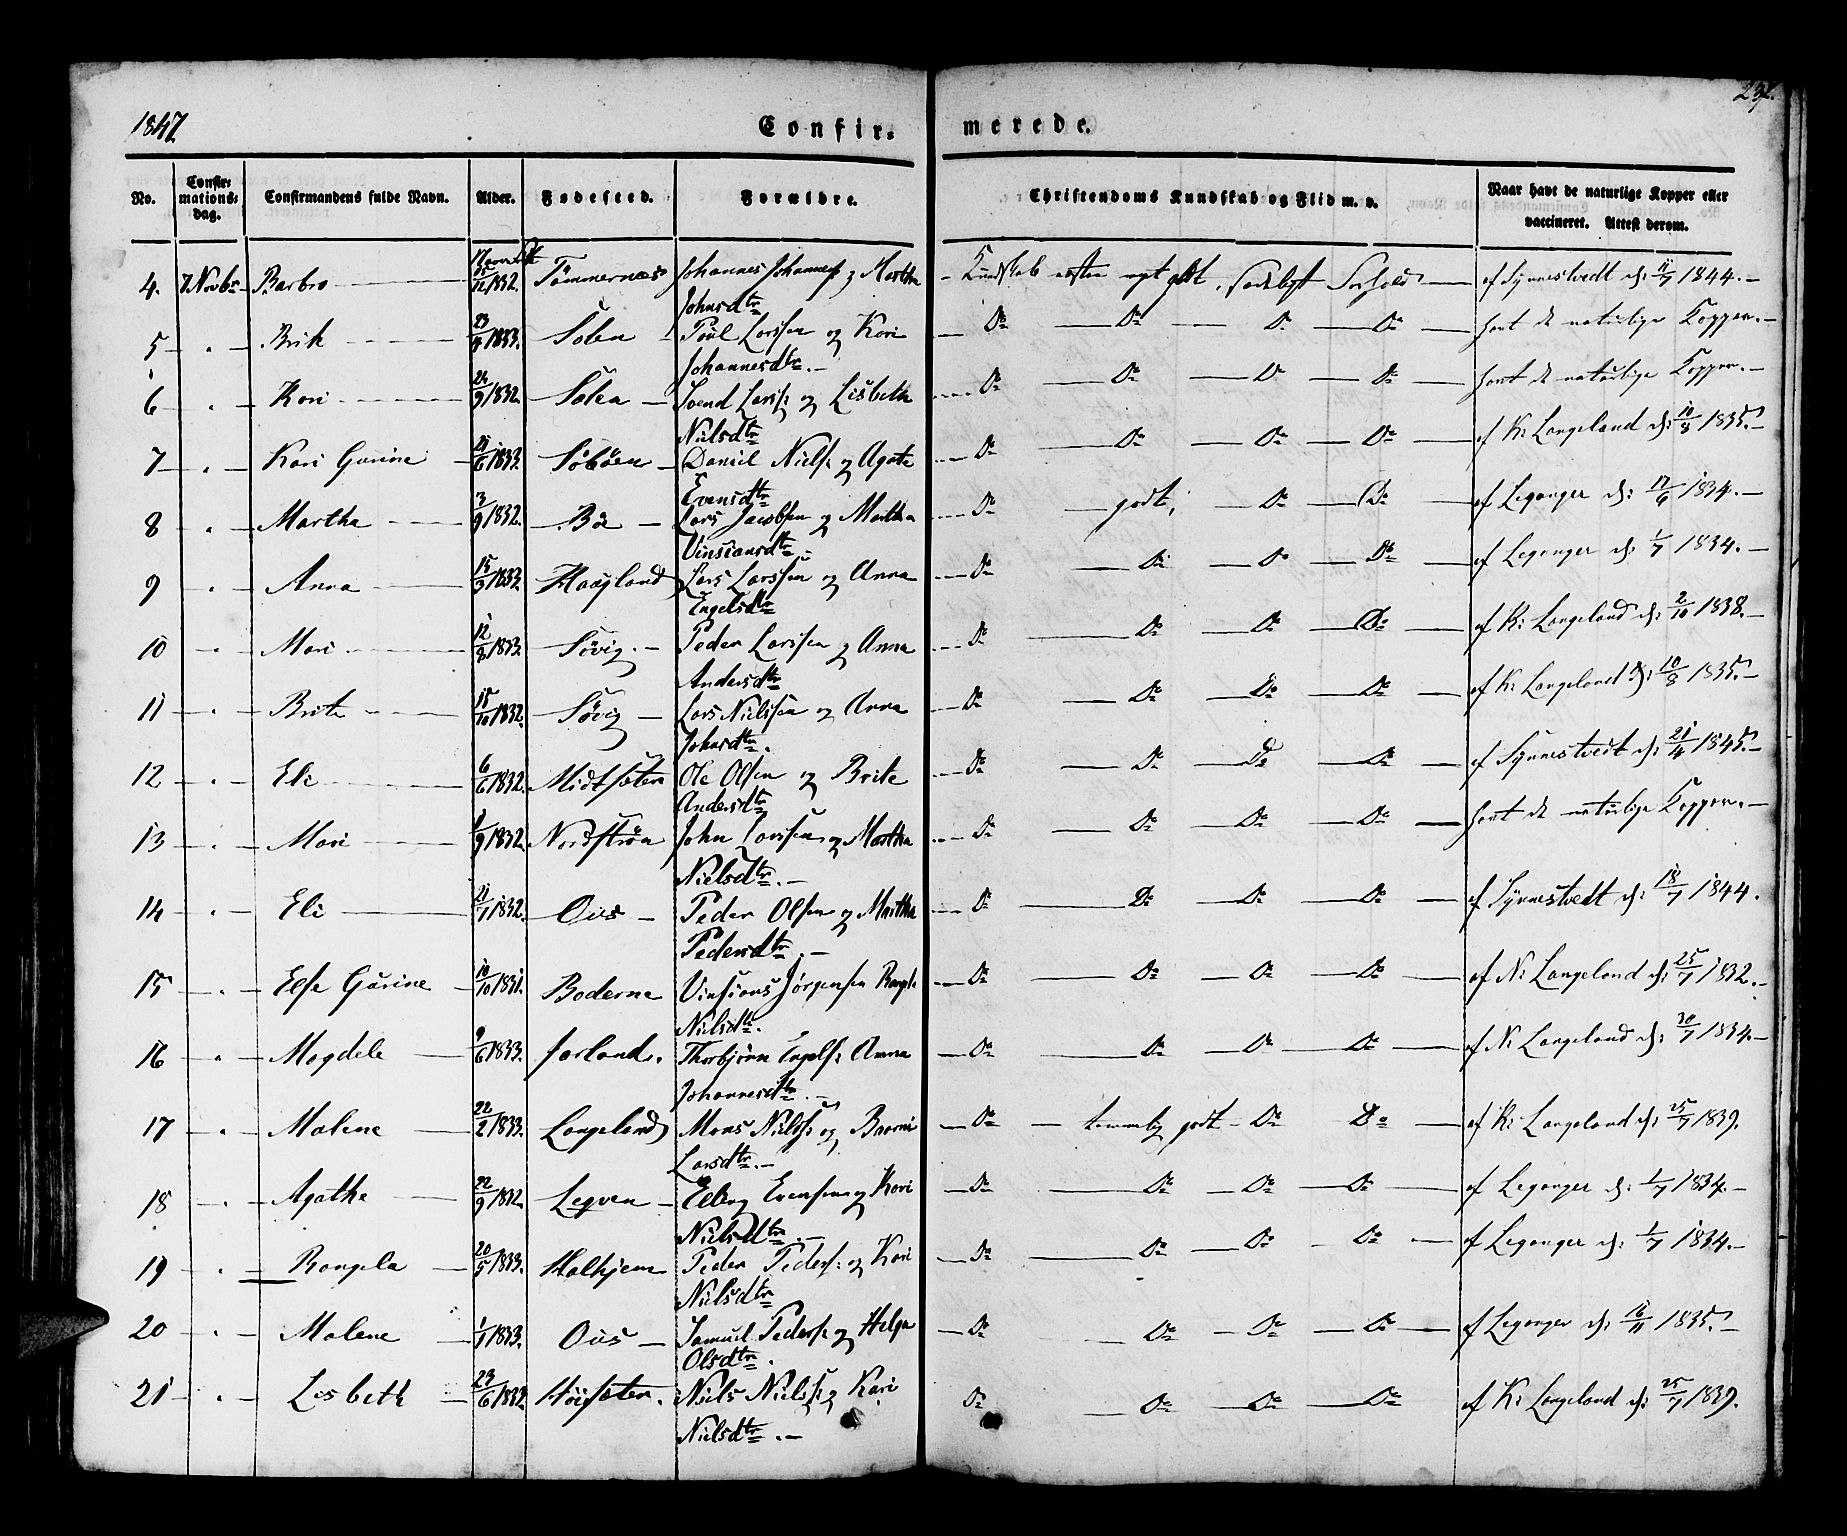 1847
Confir-
merede.
232.
No.
Confir-
mations-
dag.
Confirmandens fulde Navn.
Alder.
Fødested.
Forældre.
Christendoms Kundskab og Flid m. v.
Naar havt de naturlige Kopper eller
vaccineret. Attest derom.
4. 7 Novbr Barbro 15/12 1832. Tømmernæs Johannes Johannes: og Martha Kundskab næsten godt, sædeligt Forhold af Synnestvedt d: /7 1844.
Johnsdtr
5 " Brite 23/4 1833. Solen Povl Larssen og Kari Do Do Do Do havt de naturlige Kopper.
Johannesdtr
6 " Kari 24/9 1832. Solen Svend Larss: og Lisbeth Do Do Do Do havt de naturlige Kopper.
Nielsdtr
7 " Kari Gurine 21/6 1833. Søbøen Daniel Niels: og Agate Do Do Do Do af K: Langeland d: 10/8 1835.
Evensdtr
8 " Martha 3/9 1832. Bø Lars Jacobsen og Martha Do godt, Do Do af Leganger d: 17/6 1834.
Vinsiansdtr
9 " Anna 15/3 1833. Haugland Lars Larssen og Anna Do Do Do Do af Leganger d: 1/7 1834.
Engelsdtr
10 " Mari 12/8 1833. Søvig Peder Larssen og Anna Do Do Do Do af K: Langeland d: 2/10 1838.
Andersdtr
11 " Brite 15/10 1832. Søvig Lars Nielssen og Anna Do Do Do Do af K: Langeland d: 10/8 1835.
Johnsdtr.
12 " Eli 6/6 1832. Midtsæter Ole Olsen og Brite Do Do Do Do af Synnestvedt d: 21/4 1845.
Andersdtr
13 " Mari 1/9 1832. Nordstrøn John Larssen og Martha Do Do Do Do havt de naturlige Kopper.
Nielsdtr
14 " Eli 21/7 1832. Ous Peder Olsen og Martha Do Do Do Do af Synnestvedt d: 18/7 1844.
Pedersdtr
15 " Else Gurine 10/10 1831. Boderne Vinsians Jørgensen Do Do Do Do af N: Langeland d: 25/7 1832.
Nielsdtr.
16 " Magdele 9/6 1833. Jarland. Thorbjørn Engels: Anna Do Do Do Do af N: Langeland d: 30/7 1834.
Johannesdtr
17 " Malene 22/2 1833. Langeland Mons Nielss: og Do temmelig godt Do Do af K: Langeland d: 25/7 1839.
Larsdtr
18 " Agathe 22/9 1832. Legven Elling Evensen og Kari Do Do Do Do af Leganger d: 1/7 1834.
Nielsdtr
19 " Rangela 20/5 1833. Halhjem Peder Peders: og Kari Do Do Do Do af Leganger d: 1/7 1834.
Nielsdtr
20 " Malene 1/1 1833. Ous Samuel Peders: og Helga Do Do Do Do af Leganger d: 16/11 1835.
Olsdtr.
21 " Lisbeth 23/6 1833. Høisæter. Niels Nielss: og Kari Do Do Do Do af K: Langeland d: 25/7 1839.
Nielsdtr.